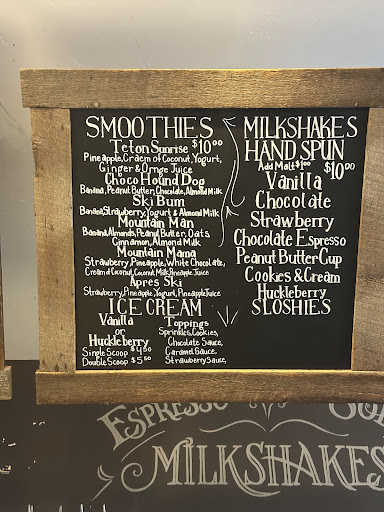 SMOOTHIES
Teton Sunrise $10.00
Pineapple, Craem of Coconut, Yogurt,
Ginger & Ornge Juice
Choco Hound Dog
Banana, Peanut Butter, Chocolate, Almond Milk
Ski Bum
Banana, Strawberry, Yogurt & Almond Milk
Mountain Man
Banana, Almonds, Peanut Butter, Oats,
Cinnamon, Almond Milk
Mountain Mama
Strawberry, Pineapple, White Chocolate,
Cream of Coconut, Coconut Milk, Pineapple Juice
Apres Ski
Strawberry, Pineapple, Yogurt, Pineapple Juice
ICE CREAM
Vanilla
or
Huckleberry
Single Scoop $4.50
Double Scoop $5.50
Toppings
Sprinkles, Cookies,
Chocolate Sauce,
Caramel Sauce,
Strawberry Sauce,
MILKSHAKES
HAND SPUN
Add Malt $1.00 $10.00
Vanilla
Chocolate
Strawberry
Chocolate Espresso
Peanut Butter Cup
Cookies & Cream
Huckleberry
SLOSHIES
ESPRESSO
MILKSHAKES